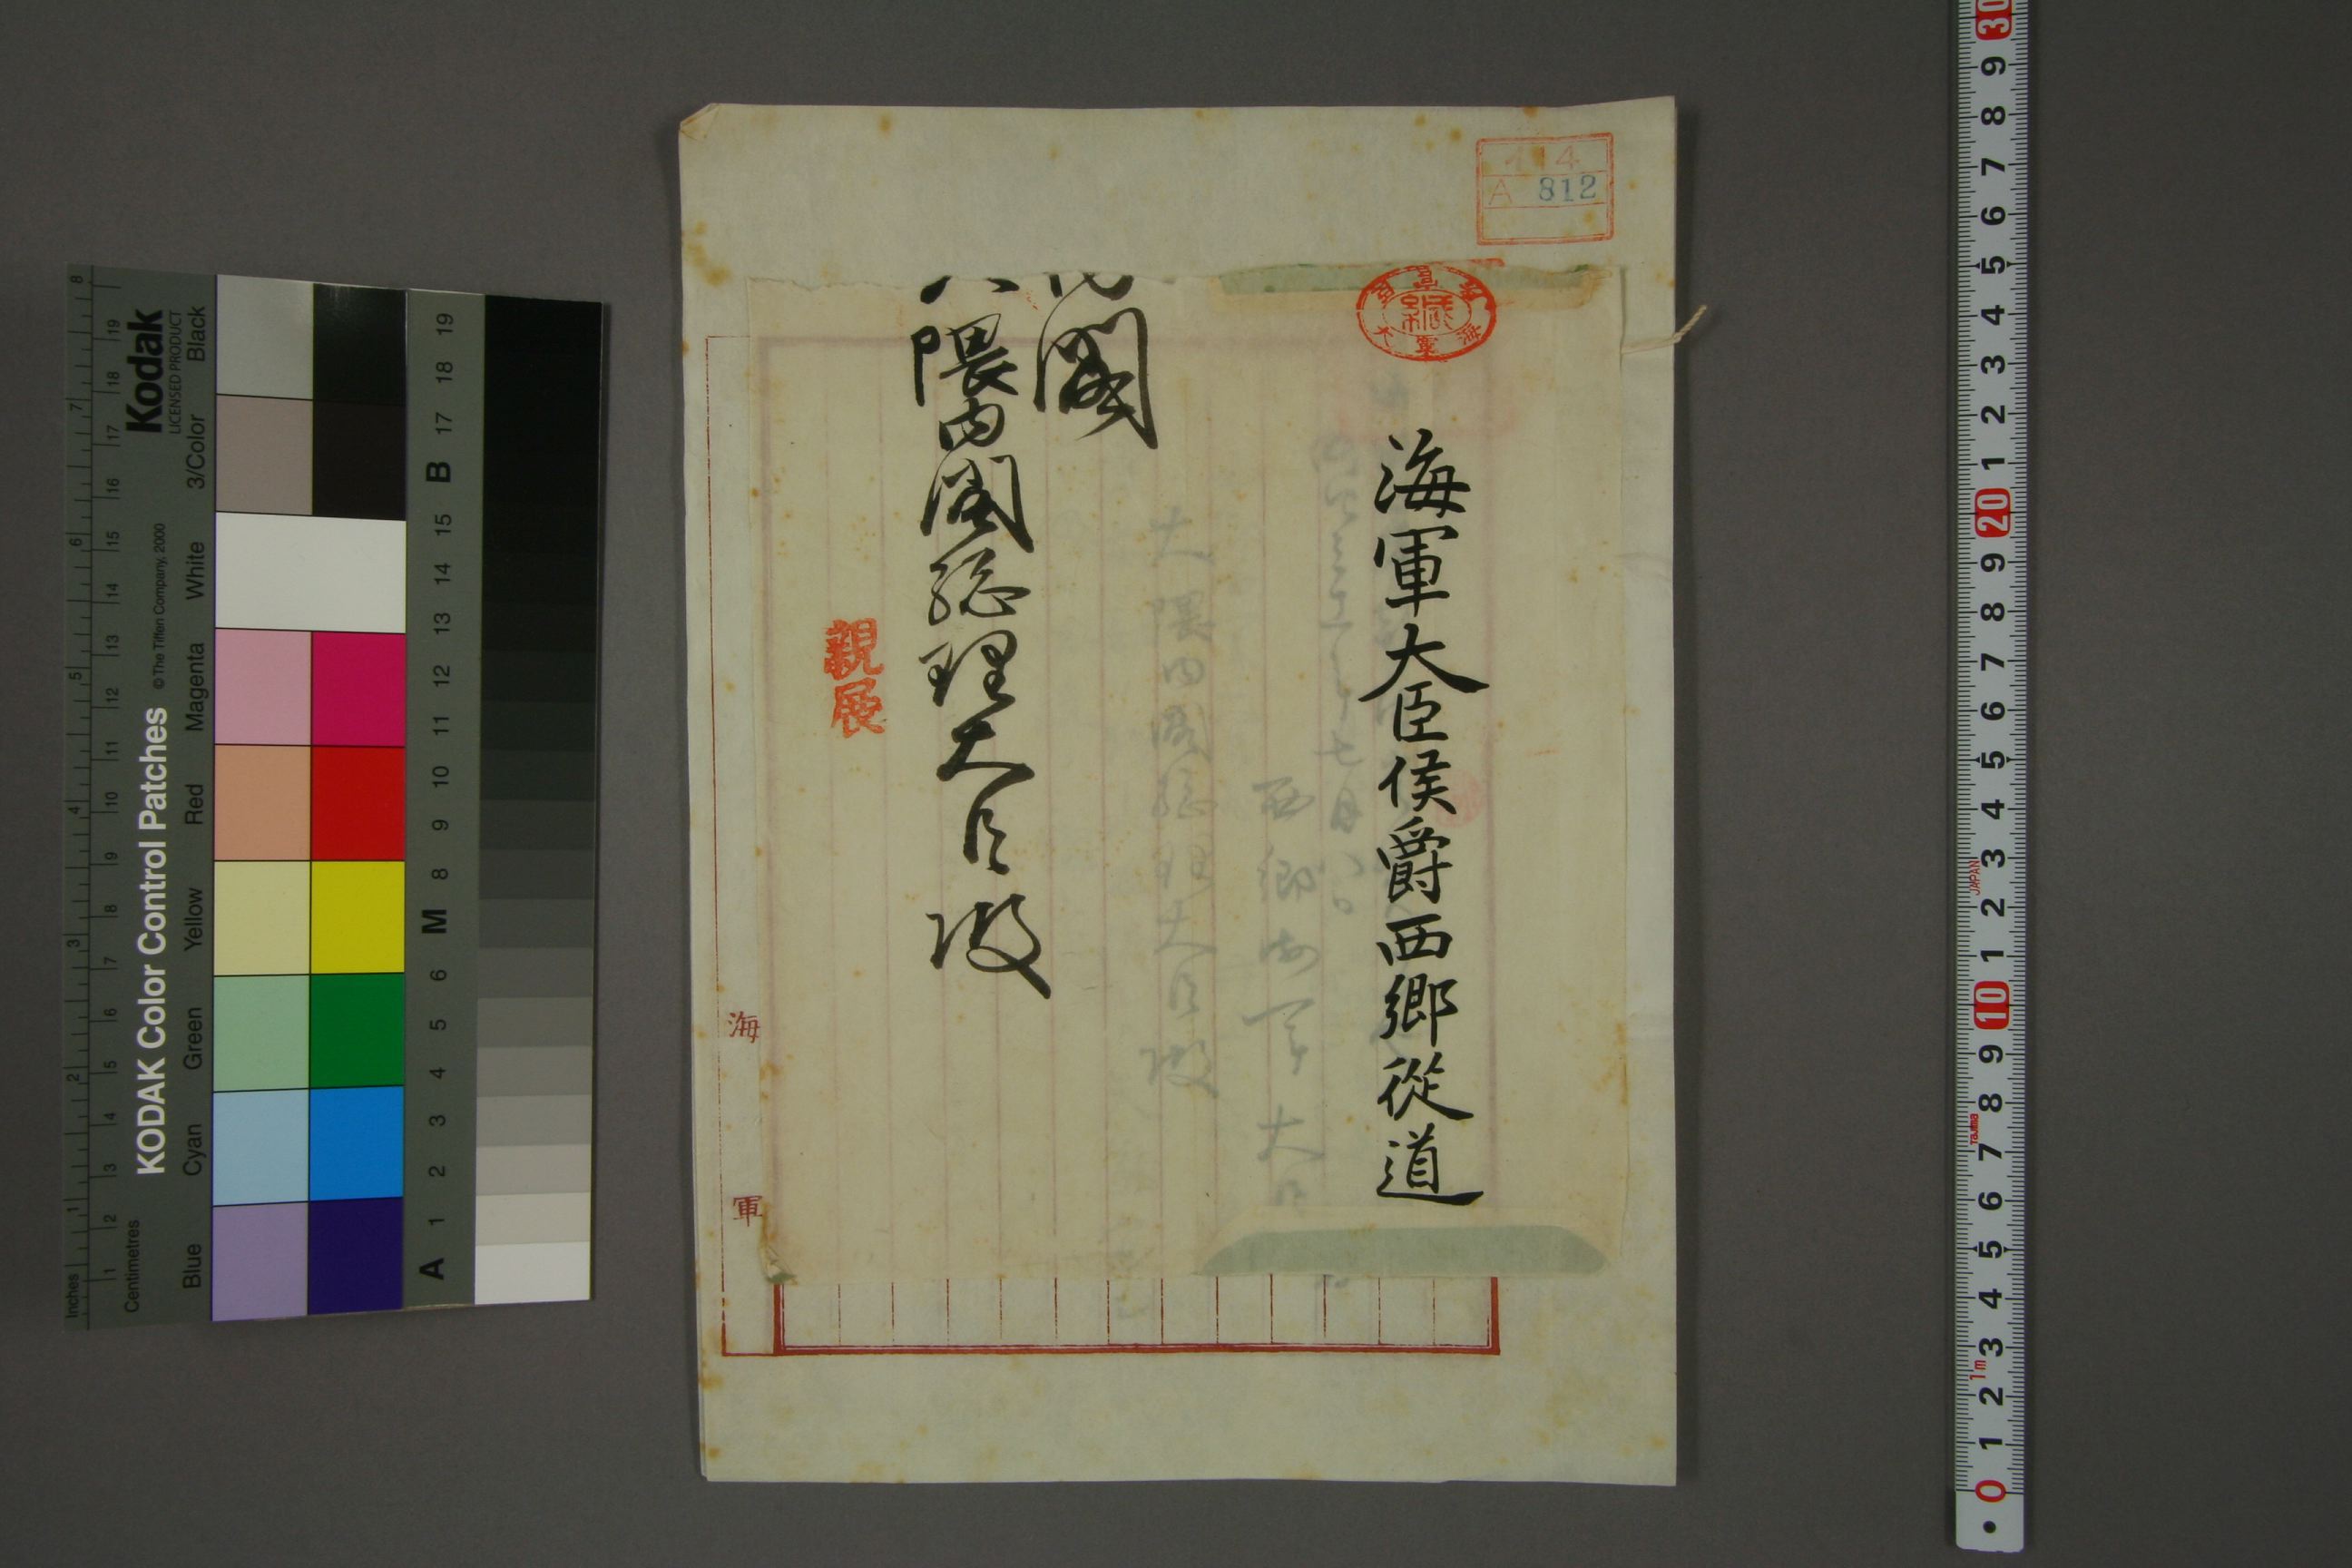 14
A 812
海軍大臣侯爵西郷從道
内閣
大隈内閣総理大臣殿
親展
海軍
明治三十一年七月八日
西郷海軍大臣
大隈内閣総理大臣殿
KODAK Color Control Patches
© The Tiffen Company, 2000
Kodak
LICENSED PRODUCT
Inches
Centimetres
Blue
Cyan
Green
Yellow
Red
Magenta
White
3/Color
Black
A 1 2 3 4 5 6 M 8 9 10 11 12 13 14 15 B 17 18 19
JAPAN
Tajima
1m